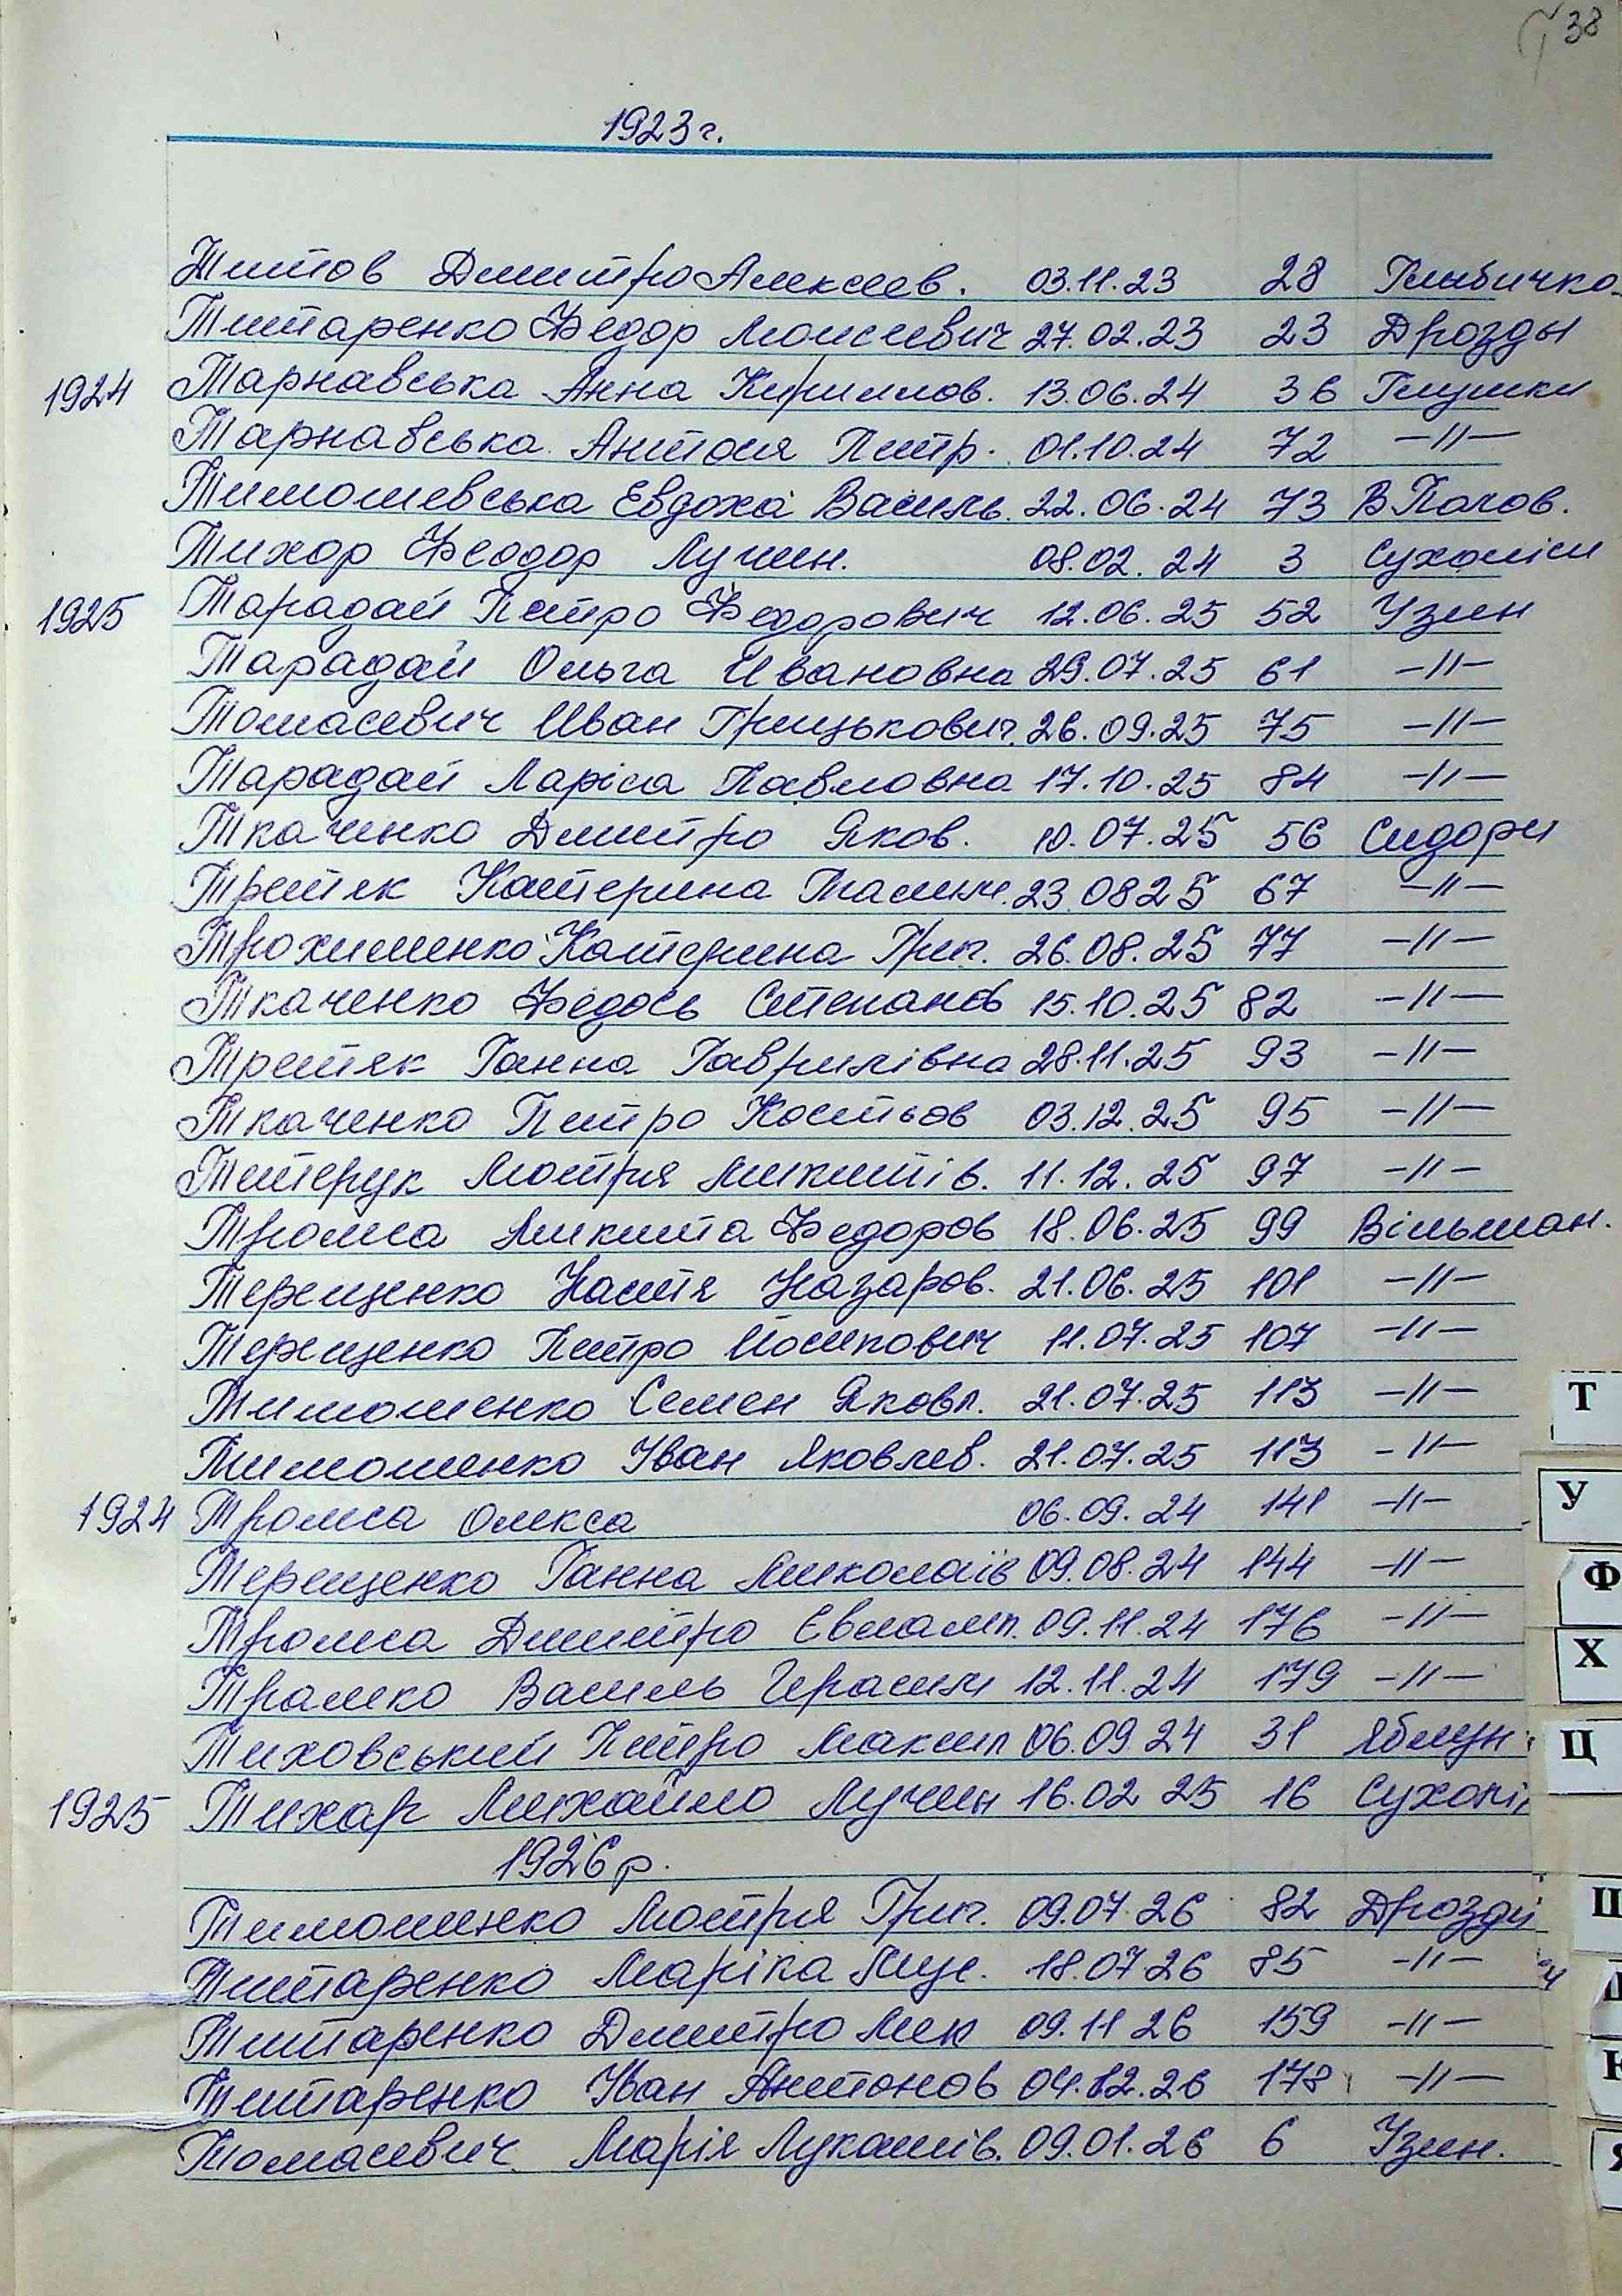 38
1923 г.
Титов Дмитро Алексеев. 03.11.23 28 Глыбичко
Титаренко Федор Моисеевич 27.02.23 23 Дрозды
1924 Тарнавська Анна Кириллов. 13.06.24 36 Глушки
Тарнавська Антося Петр. 01.10.24 72 -//-
Тимошевська Евдоха Василь. 22.06.24 73 В Полов.
Тихор Феодор Лучин. 08.02.24 3 Сухоліси
1925 Тарадай Петро Федорович 12.06.25 52 Узин
Тарадай Ольга Ивановна 29.07.25 61 -//-
Томасевич Иван Грицькович. 26.09.25 75 -//-
Тарадай Ларіса Павловна 17.10.25 84 -//-
Ткаченко Дмитро Яков. 10.07.25 56 Сидори
Третяк Катерина 23.08 25 67 -//-
Трохименко Катерина Григ. 26.08.25 77 -//-
Ткаченко Федось Степанов 15.10.25 82 -//-
Третяк Ганна Гаврилівна 28.11.25 93 -//-
Ткаченко Петро Костьов 03.12.25 95 -//-
Тетерук Мотря Микитів. 11.12.25 97 -//-
Тромса Микита Федоров 18.06.25 99 Вільшан.
Терещенко Настя Назаров. 21.06.25 101 -//-
Терещенко Петро Йосипович 11.07.25 107 -//-
Тимошенко Семен Яковл. 21.07.25 113 -//-
Тимошенко Іван Яковлев. 21.07.25 113 -//-
1924 Тромса Олекса 06.09.24 141 -//-
Терещенко Ганна Миколаїв 09.08.24 144 -//-
Тромса Дмитро Евламп. 09.11.24 176 -//-
Трамко Василь Герасим 12.11.24 179 -//-
Тиховський Петро Максим 06.09.24 31 Яблун
1925 Тихар Михайло Лучин 16.02 25 16 Сухолі
1926 р.
Тимошенко Мотря Григ. 09.07.26 82 Дрозди
Титаренко Маріка 18.07 26 85 -//-
Титаренко Дмитро Мик 09.11 26 159 -//-
Титаренко Іван Антонов 04.12.26 178 -//-
Томасевич Марія Лукашів. 09.01.26 6 Узин.
Т
У
Ф
Х
Ц